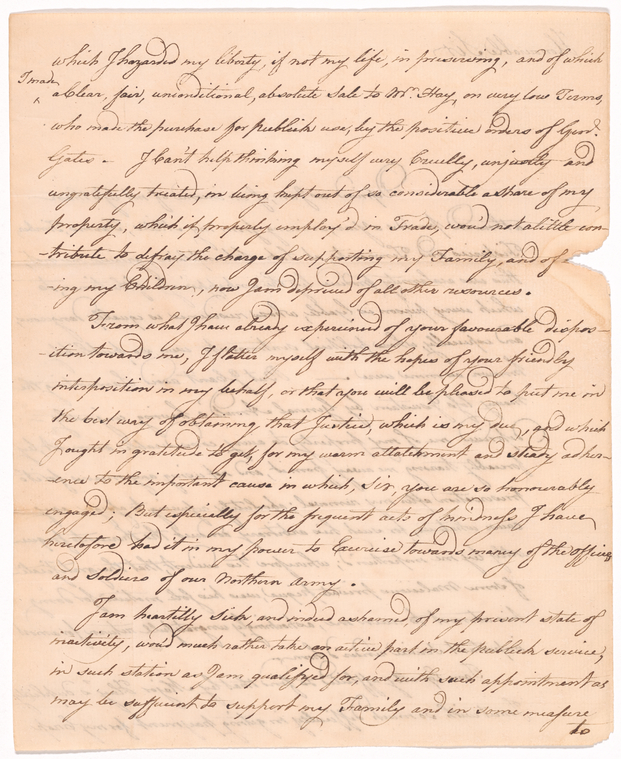 which I hazarded my liberty, if not my life, in preserving, and of which
I made
a Clear, fair, unconditional, absolute Sale to Mr. Hay, on very low Terms,
who made the purchase for publick use, by the positive orders of Genl.
Gates – I Can't help thinking myself very Cruelly, unjustly and
ungratefully treated, on being kept out of so considerable a share of my
property, which if properly employ'd in Trade, wou'd not a little con-
-tribute to defray the charge of supporting my Family, and of
-ing my Children, now I am deprived of all other resources.
From what I have already experienced of your favourable dispos-
-ition towards me, I flatter myself with the hopes of your friendly
interposition in my behalf, or that you will be pleased to put me in
the best way of obtaining that Justice, which is my due, and which
I ought in gratitude to get, for my warm attatchment and steady adher-
-ence to the important cause in which, Sir, you are so honourably
engaged; But especially for the frequent acts of kindness I have
heretofore had it in my power to Exercise towards many of the officers
and Soldiers of our Northern Army.
I am heartilly Sick, and indeed ashamed of my present state of
inactivity, wou'd much rather take an active part in the publick service,
in such station as I am qualifyed for, and with such appointment as
may be sufficient to support my Family and in some measure
to